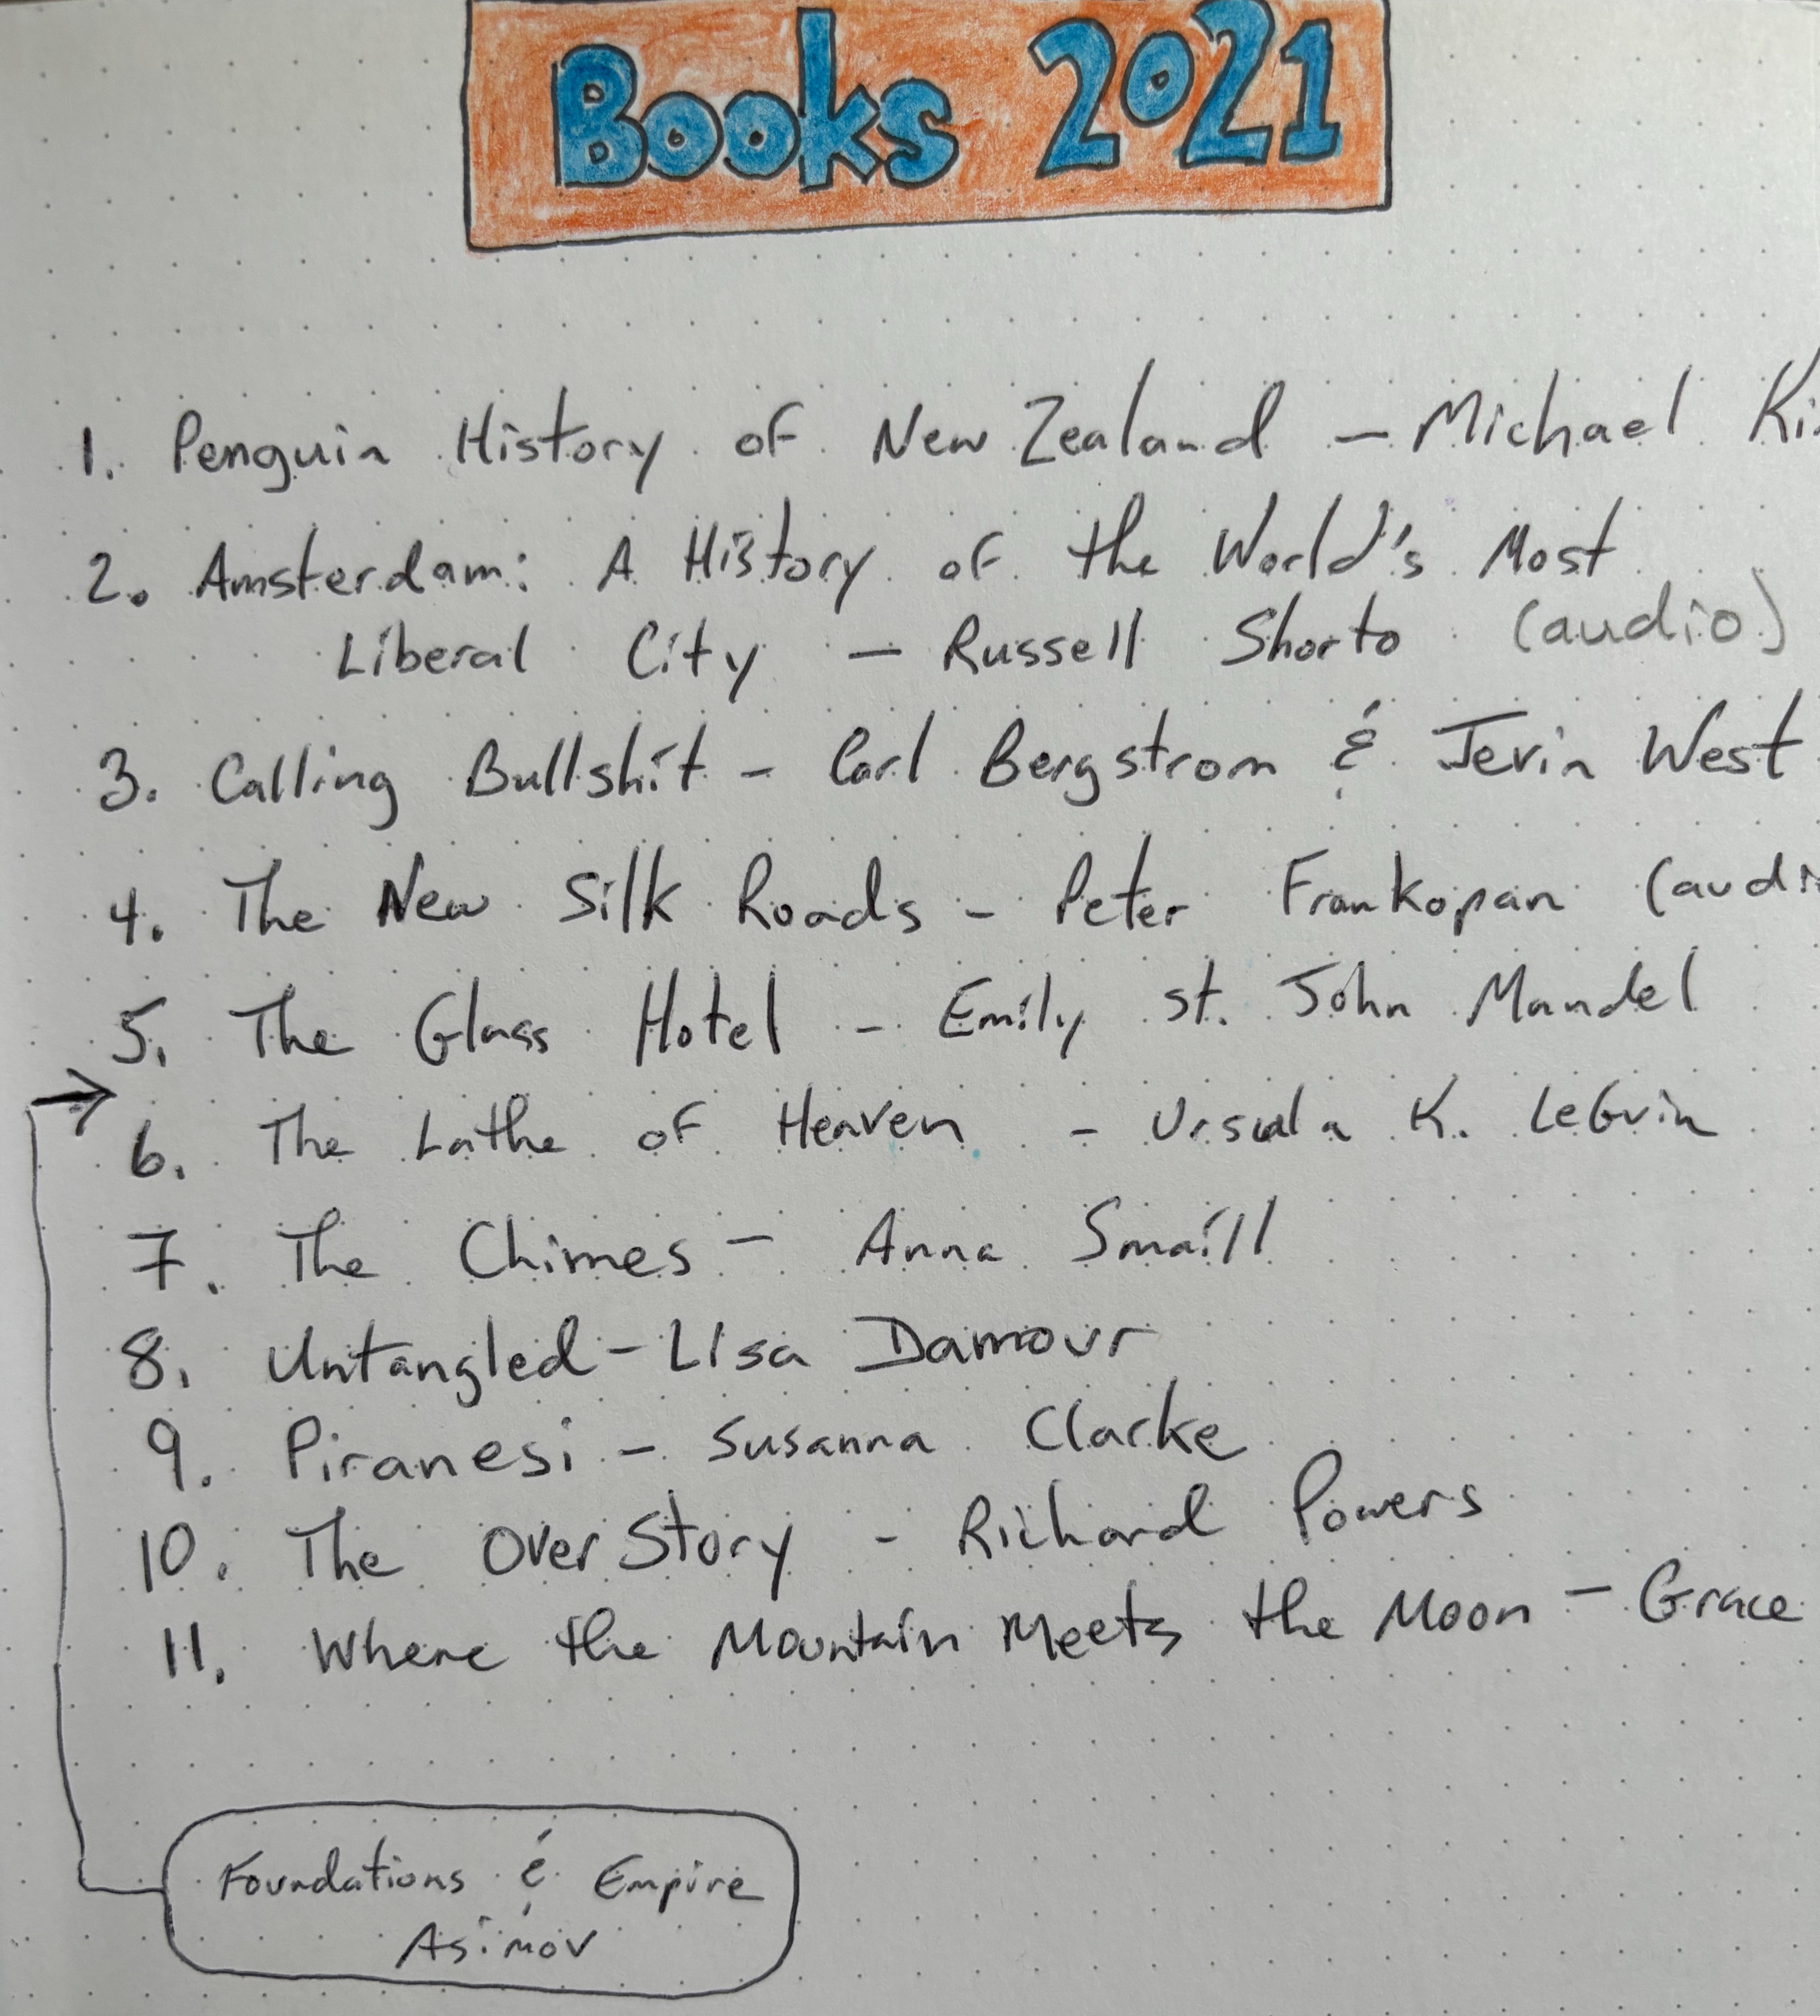 Books 2021
1. Penguin History of New Zealand – Michael Ki
2. Amsterdam: A History of the World's Most
Liberal City – Russell Shorto (audio)
3. Calling Bullshit – Carl Bergstrom & Jevin West
4. The New Silk Roads – Peter Frankopan (audi
5. The Glass Hotel – Emily St. John Mandel
6. The Lathe of Heaven – Ursula K. LeGuin
7. The Chimes – Anna Smaill
8. Untangled – Lisa Damour
9. Piranesi – Susanna Clarke
10. The OverStory – Richard Powers
11. Where the Mountain Meets the Moon – Grace
Foundations & Empire
Asimov